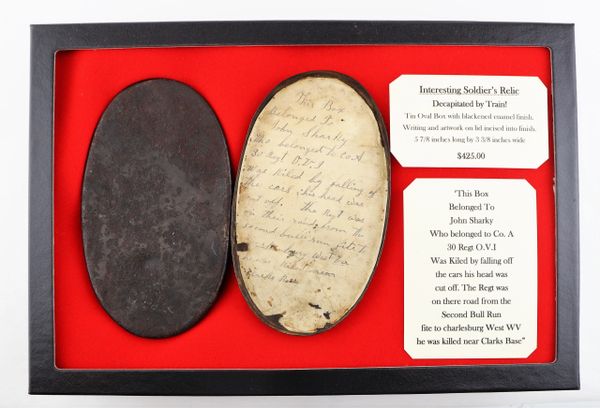 This Box
Belonged To
John Sharky
Who belonged to Co. A
30 Regt O.V.I
Was Kiled by falling of
the cars his head was
cut off. The Regt was
on their road from the
second bull run fite to
West Va
Clarks Base
Interesting Soldier's Relic
Decapitated by Train!
Tin Oval Box with blackened enamel finish.
Writing and artwork on lid incised into finish.
5 7/8 inches long by 3 3/8 inches wide
$425.00
'This Box
Belonged To
John Sharky
Who belonged to Co. A
30 Regt O.V.I
Was Kiled by falling off
the cars his head was
cut off. The Regt was
on there road from the
Second Bull Run
fite to charlesburg West WV
he was killed near Clarks Base"